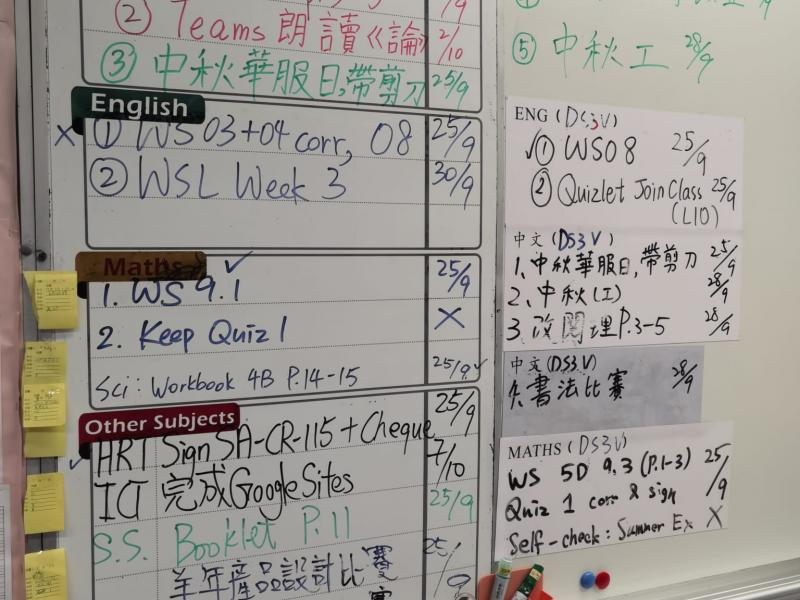 ② Teams 朗讀《論》 2/10
③ 中秋華服日,帶剪刀 25/9
English
X ① WS 03+04 corr, 08 25/9
② WSL Week 3 30/9
Maths ✓
1. WS 9.1 25/9
2. Keep Quiz 1 X
Sci: Workbook 4B P.14-15 25/9 ✓
Other Subjects
✓ HRT Sign SA-CR-115 + Cheque 25/9
ICT 完成 Google Sites 7/10
S.S. Booklet P.11 25/9
羊年產品設計比賽 25/9
⑤ 中秋工 28/9
ENG (DS3V)
✓① WS08 25/9
② Quizlet Join Class 25/9
(L10)
中文 (DS3V)
1、中秋華服日,帶剪刀 25/9
2、中秋(工) 28/9
3. 改閱理P.3-5 28/9
中文(DS3V)
4.書法比賽 28/9
MATHS (DS3V)
WS 5D 9.3 (P.1-3) 25/9
Quiz 1 corr & sign
Self-check: Summer Ex X